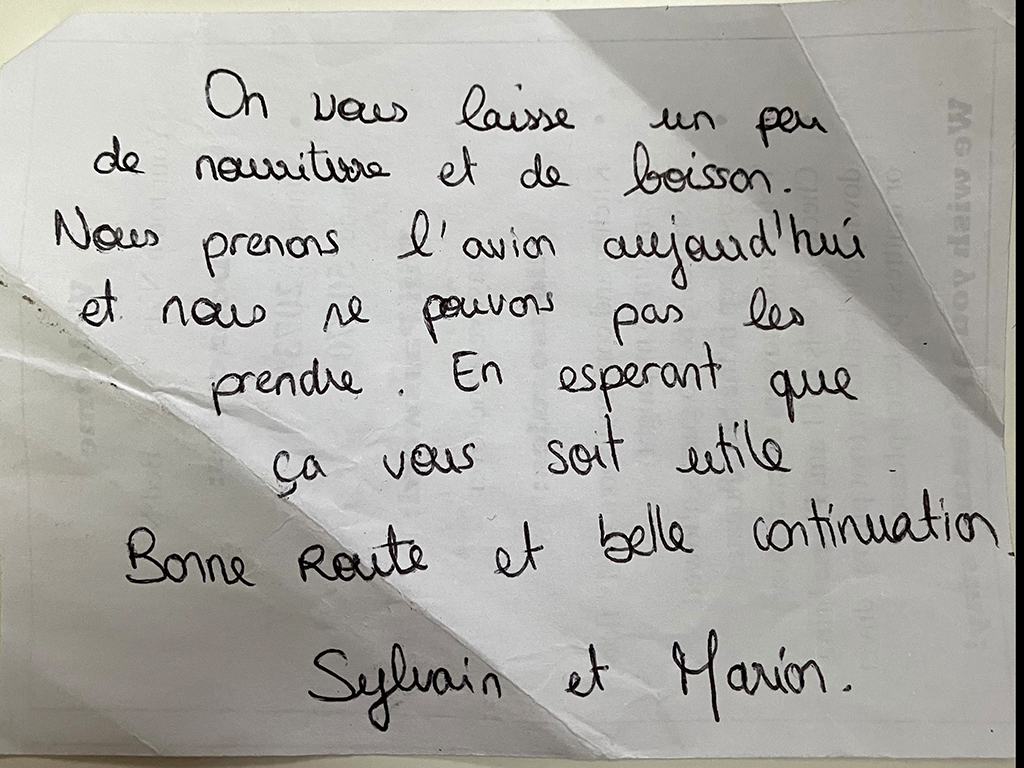 On vous laisse un peu
de nourriture et de boisson.
Nous prenons l'avion aujourd'hui
et nous ne pouvons pas les
prendre. En esperant que
ça vous soit utile
Bonne Route et belle continuation.
Sylvain et Marion.
We wish you